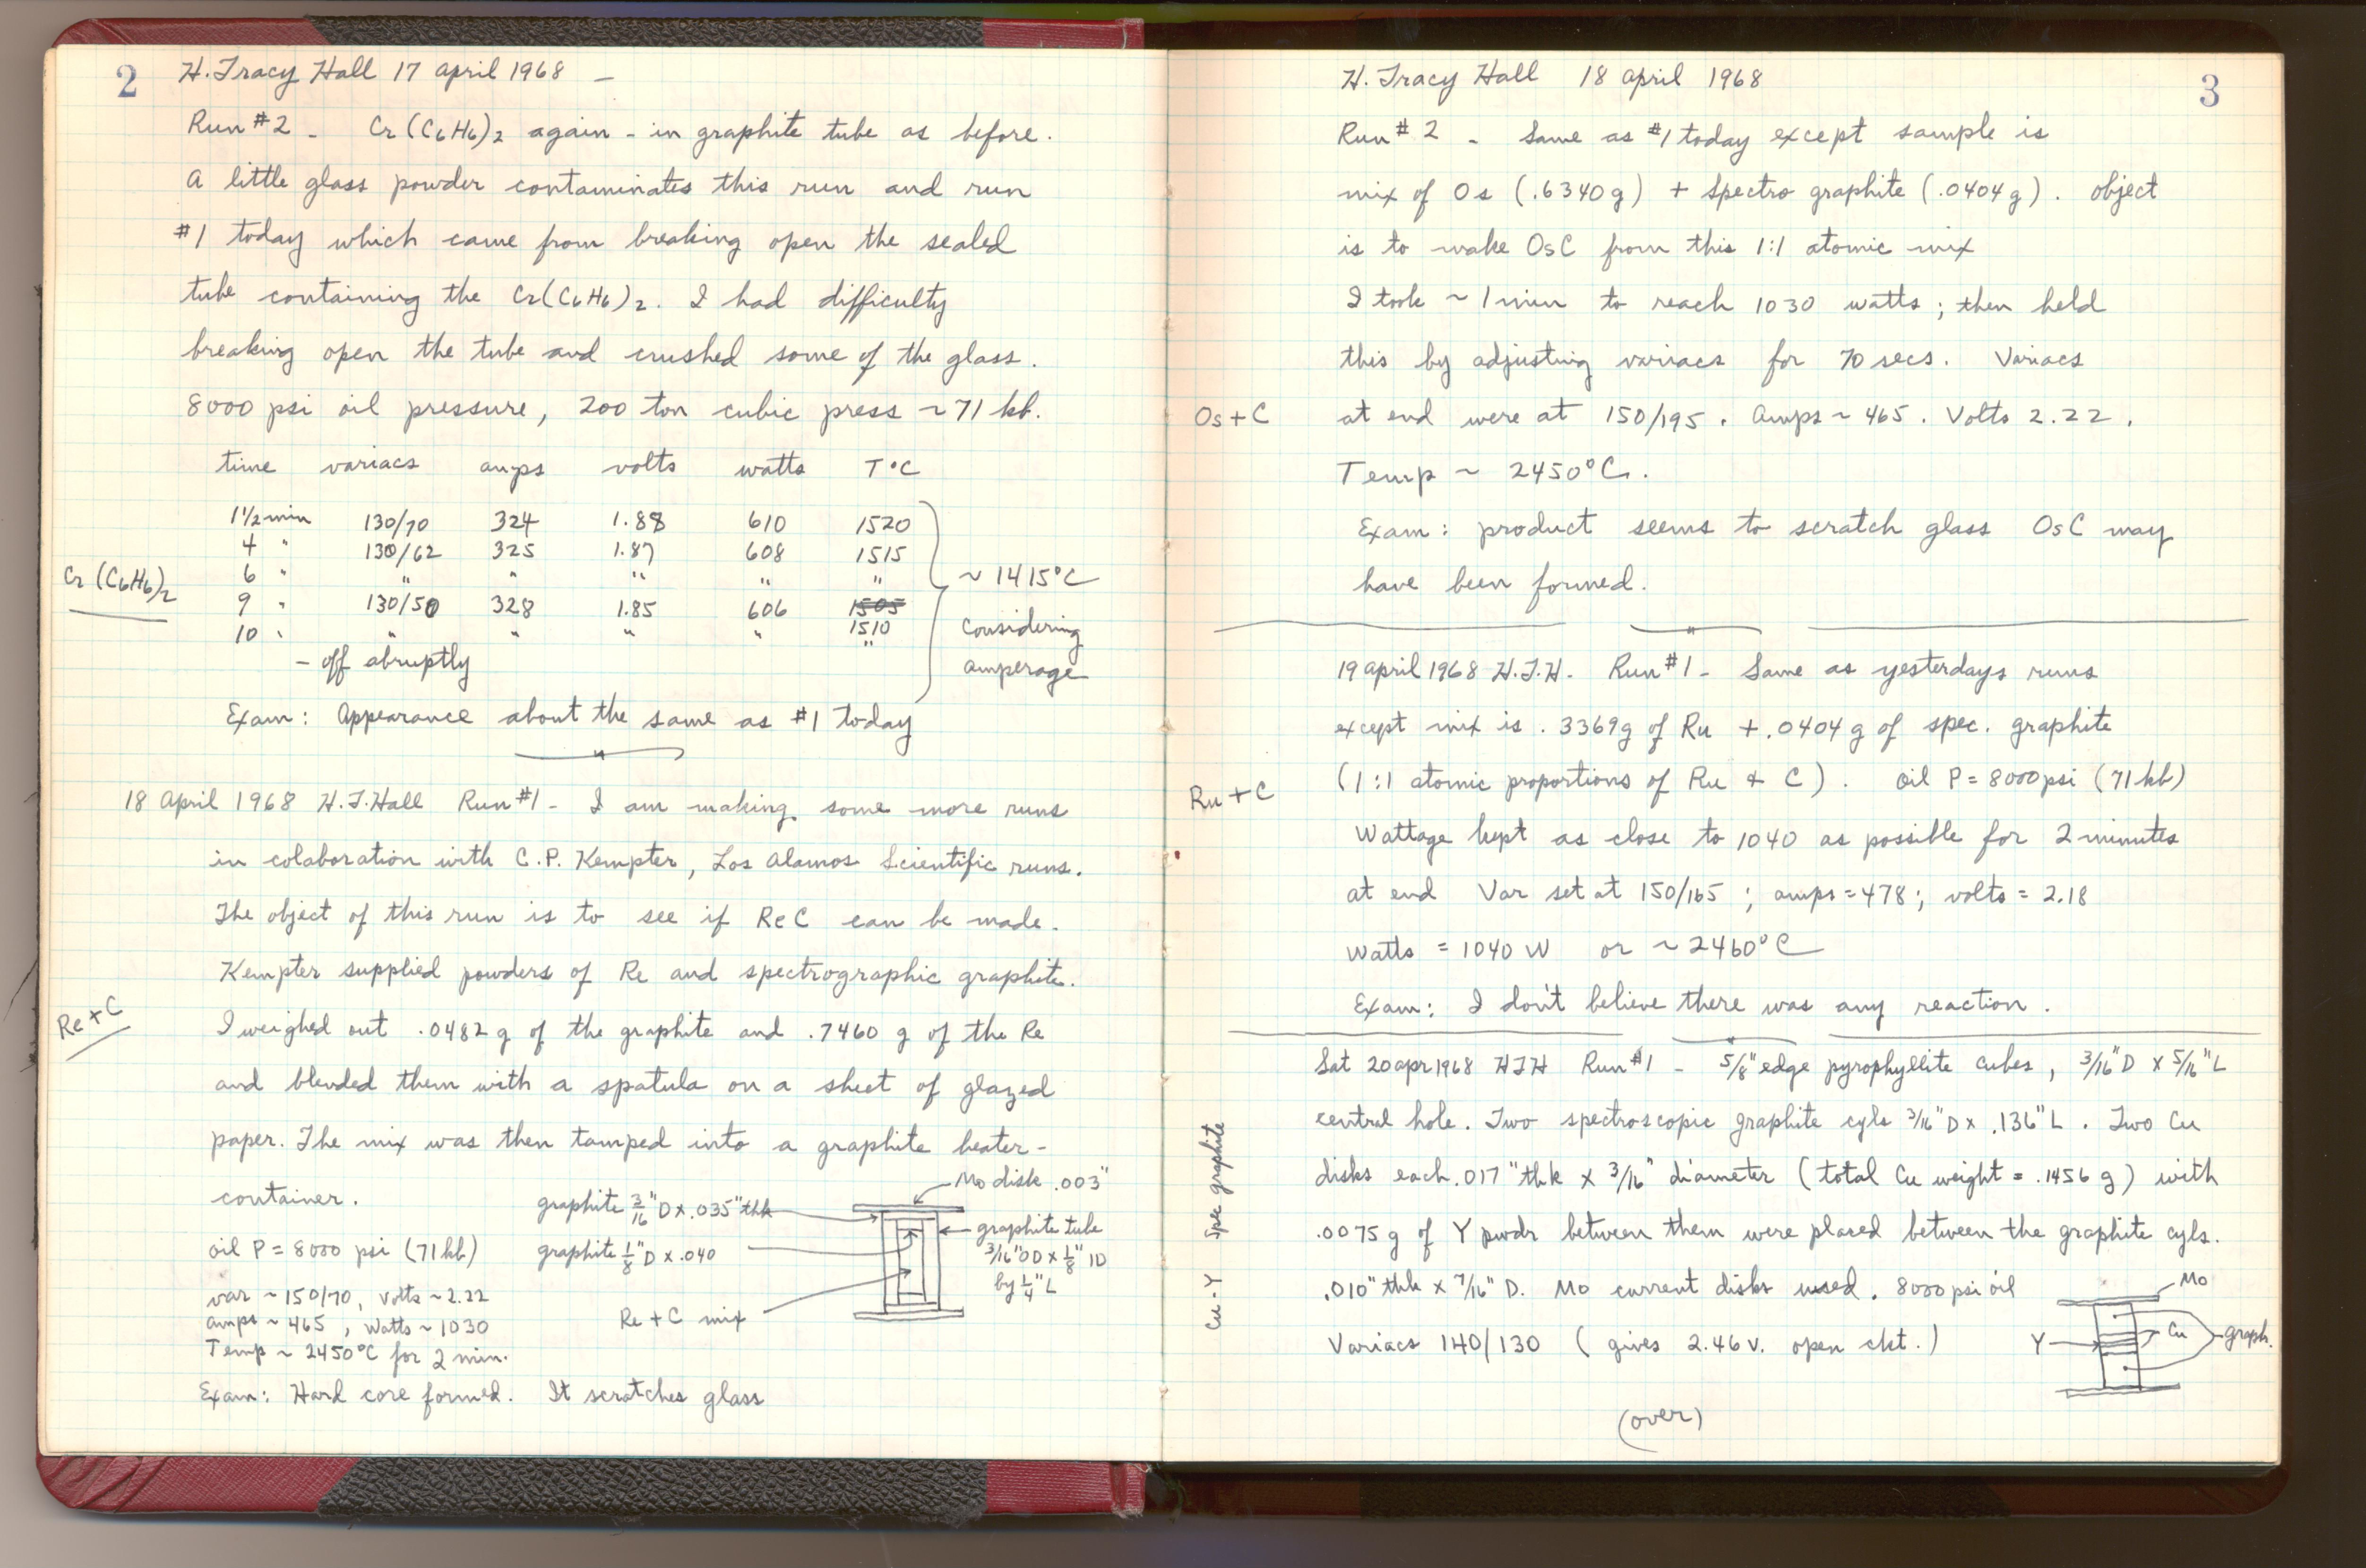 2
H. Tracy Hall 17 April 1968 —
Run #2 - Cr(C6H6)2 again - in graphite tube as before.
A little glass powder contaminates this run and run
#1 today which came from breaking open the sealed
tube containing the Cr(C6H6)2. I had difficulty
breaking open the tube and crushed some of the glass.
8000 psi oil pressure, 200 ton cubic press ~71 kb.
time variacs amps volts watts T°C
1½ min 130/70 324 1.88 610 1520
4 " 130/62 325 1.87 608 1515
6 " " " " " "
9 " 130/50 328 1.85 606 1505
1510
10 " " " " " "
~ 1415°C
considering
amperage
Cr(C6H6)2
- off abruptly
Exam: Appearance about the same as #1 today
18 April 1968 H.T.Hall Run #1 - I am making some more runs
in colaboration with C.P. Kempter, Los Alamos Scientific runs.
The object of this run is to see if ReC can be made.
Kempter supplied powders of Re and spectrographic graphite.
Re+C
I weighed out .0482 g of the graphite and .7460 g of the Re
and blended them with a spatula on a sheet of glazed
paper. The mix was then tamped into a graphite heater-
container.
Mo disk .003"
graphite 3/16" D x .035" thk
graphite 1/8" D x .040
graphite tube
3/16" OD x 1/8" ID
by 1/4" L
Re + C mix
oil P = 8000 psi (71 kb)
var ~ 150/70, volts ~ 2.22
amps ~ 465, Watts ~ 1030
Temp ~ 2450°C for 2 min.
Exam: Hard core formed. It scratches glass
3
H. Tracy Hall 18 April 1968
Run # 2 - Same as #1 today except sample is
mix of Os (.6340g) + spectro graphite (.0404g). object
is to make OsC from this 1:1 atomic mix
I took ~ 1 min to reach 1030 watts; then held
this by adjusting variacs for 70 secs. Variacs
Os+C
at end were at 150/195. Amps ~ 465. Volts 2.22.
Temp ~ 2450°C.
Exam: product seems to scratch glass OsC may
have been formed.
19 April 1968 H.T.H. Run #1 - Same as yesterdays runs
except mix is .3369g of Ru + .0404 g of spec. graphite
Ru+C
(1:1 atomic proportions of Ru & C). Oil P = 8000 psi (71 kb)
Wattage kept as close to 1040 as possible for 2 minutes
at end Var set at 150/165; amps = 478; volts = 2.18
Watts = 1040 W or ~ 2460°C
Exam: I don't believe there was any reaction.
Sat 20 apr 1968 HTH Run #1 - 5/8" edge pyrophyllite cubes, 3/16" D x 5/16" L
central hole. Two spectroscopic graphite cyls 3/16" D x .136" L. Two Cu
disks each .017" thk x 3/16" diameter (total Cu weight = .1456 g) with
.0075 g of Y pwdr between them were placed between the graphite cyls.
.010" thk x 7/16" D. Mo current disks used. 8000 psi oil
Variacs 140/130 (gives 2.46 v. open ckt.)
Cu-Y Spec graphite
Mo
Cu
Y
graph.
(over)